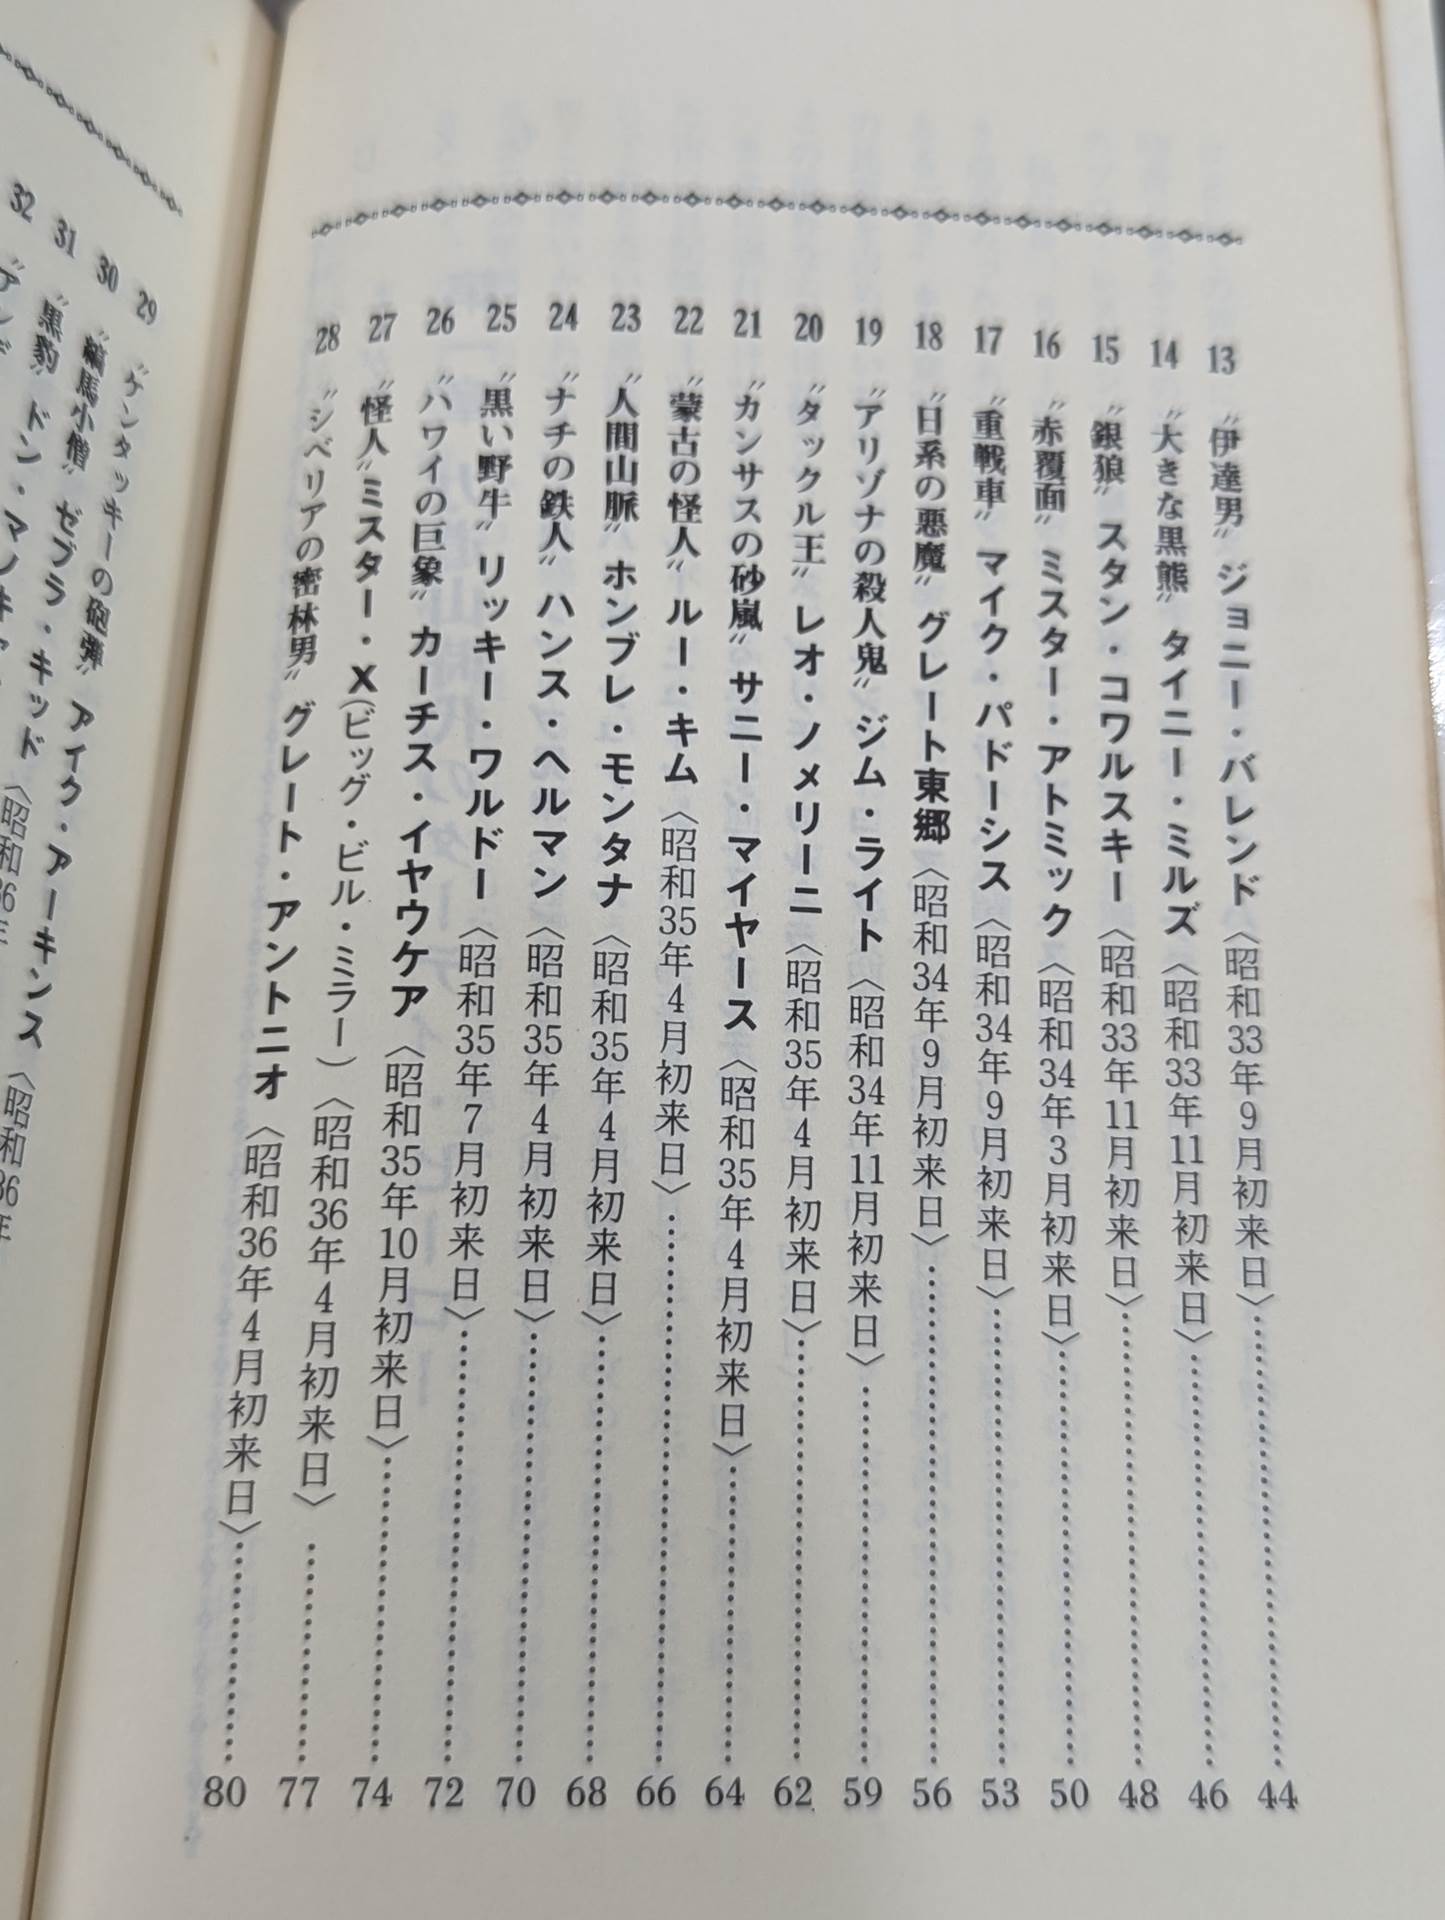 13 〝伊達男〟ジョニー・バレンド〈昭和33年9月初来日〉 44
14 〝大きな黒熊〟タイニー・ミルズ〈昭和33年11月初来日〉 46
15 〝銀狼〟スタン・コワルスキー〈昭和33年11月初来日〉 48
16 〝赤覆面〟ミスター・アトミック〈昭和34年3月初来日〉 50
17 〝重戦車〟マイク・パドーシス〈昭和34年9月初来日〉 53
18 〝日系の悪魔〟グレート東郷〈昭和34年9月初来日〉 56
19 〝アリゾナの殺人鬼〟ジム・ライト〈昭和34年11月初来日〉 59
20 〝タックル王〟レオ・ノメリーニ〈昭和35年4月初来日〉 62
21 〝カンサスの砂嵐〟サニー・マイヤース〈昭和35年4月初来日〉 64
22 〝蒙古の怪人〟ルー・キム〈昭和35年4月初来日〉 66
23 〝人間山脈〟ホンブレ・モンタナ〈昭和35年4月初来日〉 68
24 〝ナチの鉄人〟ハンス・ヘルマン〈昭和35年4月初来日〉 70
25 〝黒い野牛〟リッキー・ワルドー〈昭和35年7月初来日〉 72
26 〝ハワイの巨象〟カーチス・イヤウケア〈昭和35年10月初来日〉 74
27 〝怪人〟ミスター・X(ビッグ・ビル・ミラー)〈昭和36年4月初来日〉 77
28 〝シベリアの密林男〟グレート・アントニオ〈昭和36年4月初来日〉 80
29 〝ケンタッキーの砲弾〟アイク・アーキンス〈昭和36年
30 〝縞馬小僧〟ゼブラ・キッド〈昭和36年
31 〝黒豹〟ドン・マノキャ
32 〝アンデ